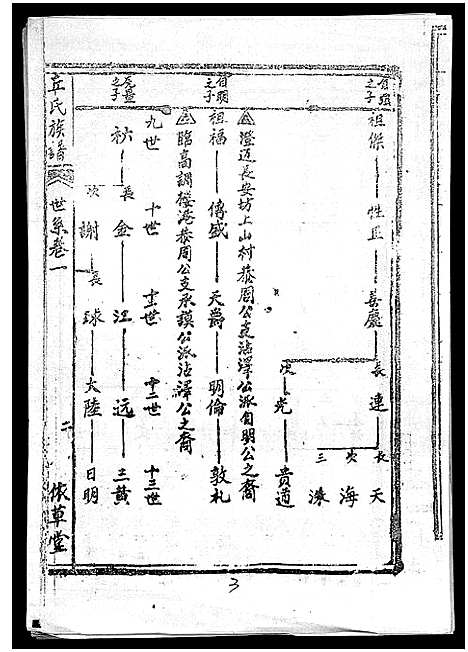 自瓊之子
祖傑 性且 善慶 長 連 長 天
次 海
三 洙
次 光 貴道
澄迈長安坊上山村恭周公支沾澤公派自明公之裔
自明之子
祖福 傳盛 天爵 明倫 敦礼
臨高調楼港恭周公支承謨公派沾澤公之裔
九世 十世 十一世 十二世 十三世
之子
長 金 江 远 三黄
次 謝 長 球 大陸 日明
丘氏族譜 世系卷一 二 依草堂
3